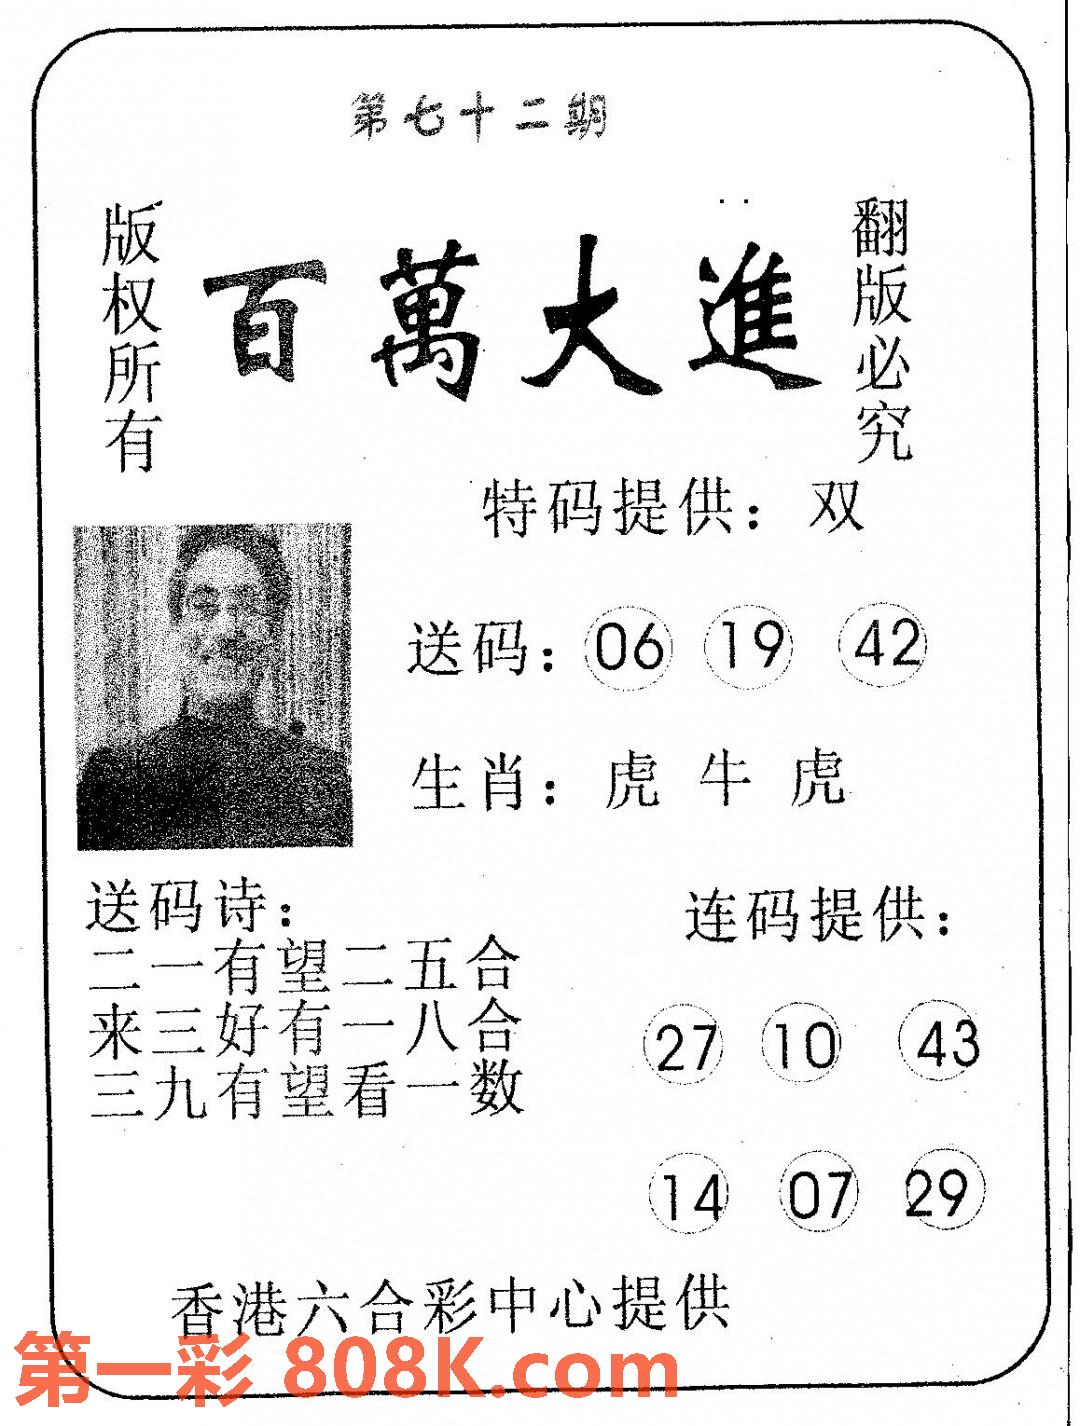 第七十二期
版权所有
百萬大進
翻版必究
特码提供：双
送码：06 19 42
生肖：虎 牛 虎
送码诗：
二一有望二五合
来三好有一八合
三九有望看一数
连码提供：
27 10 43
14 07 29
香港六合彩中心提供
第一彩 808K.com